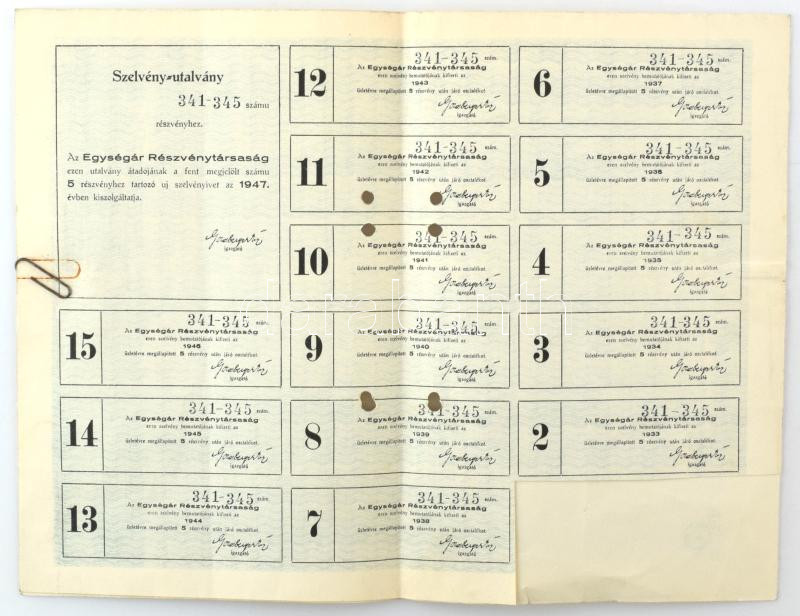 Szelvény-utalvány
341-345 számu
részvényhez.
Az Egységár Részvénytársaság
ezen utalvány átadójának a fent megjelölt számu
5 részvényhez tartozó uj szelvényivet az 1947.
évben kiszolgáltatja.
15
341-345 szám.
Az Egységár Részvénytársaság
ezen szelvény bemutatójának kifizeti az
1946
üzletévre megállapított 5 részvény után járó osztalékot.
igazgató
14
341-345 szám.
Az Egységár Részvénytársaság
ezen szelvény bemutatójának kifizeti az
1945
üzletévre megállapított 5 részvény után járó osztalékot.
igazgató
13
341-345 szám.
Az Egységár Részvénytársaság
ezen szelvény bemutatójának kifizeti az
1944
üzletévre megállapított 5 részvény után járó osztalékot.
igazgató
12
341-345 szám.
Az Egységár Részvénytársaság
ezen szelvény bemutatójának kifizeti az
1943
üzletévre megállapított 5 részvény után járó osztalékot.
igazgató
11
341-345 szám.
Az Egységár Részvénytársaság
ezen szelvény bemutatójának kifizeti az
1942
üzletévre megállapított 5 részvény után járó osztalékot.
igazgató
10
341-345 szám.
Az Egységár Részvénytársaság
ezen szelvény bemutatójának kifizeti az
1941
üzletévre megállapított 5 részvény után járó osztalékot.
igazgató
9
341-345 szám.
Az Egységár Részvénytársaság
ezen szelvény bemutatójának kifizeti az
1940
üzletévre megállapított 5 részvény után járó osztalékot.
igazgató
8
341-345 szám.
Az Egységár Részvénytársaság
ezen szelvény bemutatójának kifizeti az
1939
üzletévre megállapított 5 részvény után járó osztalékot.
igazgató
7
341-345 szám.
Az Egységár Részvénytársaság
ezen szelvény bemutatójának kifizeti az
1938
üzletévre megállapított 5 részvény után járó osztalékot.
igazgató
6
341-345 szám.
Az Egységár Részvénytársaság
ezen szelvény bemutatójának kifizeti az
1937
üzletévre megállapított 5 részvény után járó osztalékot.
igazgató
5
341-345 szám.
Az Egységár Részvénytársaság
ezen szelvény bemutatójának kifizeti az
1936
üzletévre megállapított 5 részvény után járó osztalékot.
igazgató
4
341-345 szám.
Az Egységár Részvénytársaság
ezen szelvény bemutatójának kifizeti az
1935
üzletévre megállapított 5 részvény után járó osztalékot.
igazgató
3
341-345 szám.
Az Egységár Részvénytársaság
ezen szelvény bemutatójának kifizeti az
1934
üzletévre megállapított 5 részvény után járó osztalékot.
igazgató
2
341-345 szám.
Az Egységár Részvénytársaság
ezen szelvény bemutatójának kifizeti az
1933
üzletévre megállapított 5 részvény után járó osztalékot.
igazgató